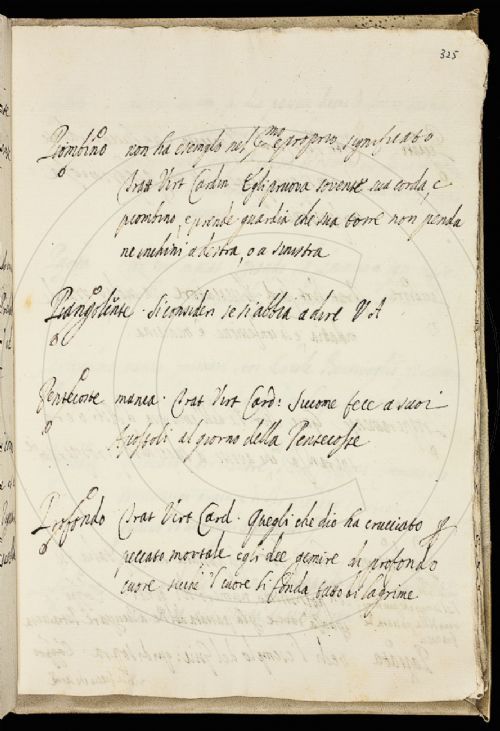 325
Piombino non ha esemplo nel p.mo e proprio significato
Tratt Virt Cardin Egli pruova sovente sua corda, e
piombino, e prende guardia che sua torre non penda
ne inchini a destra, o a sinistra
Piangolente. Si consideri se si abbia a dire V A
Pentecoste manca. Trat Virt Card: Siccome fece a suoi
Apostoli al giorno della Pentecoste
Profondo Trat Virt Card. Quegli che dio ha crucciato p
peccato mortale egli dee gemire di profondo
cuore sicché 'l cuore si fonda tutto di lagrime